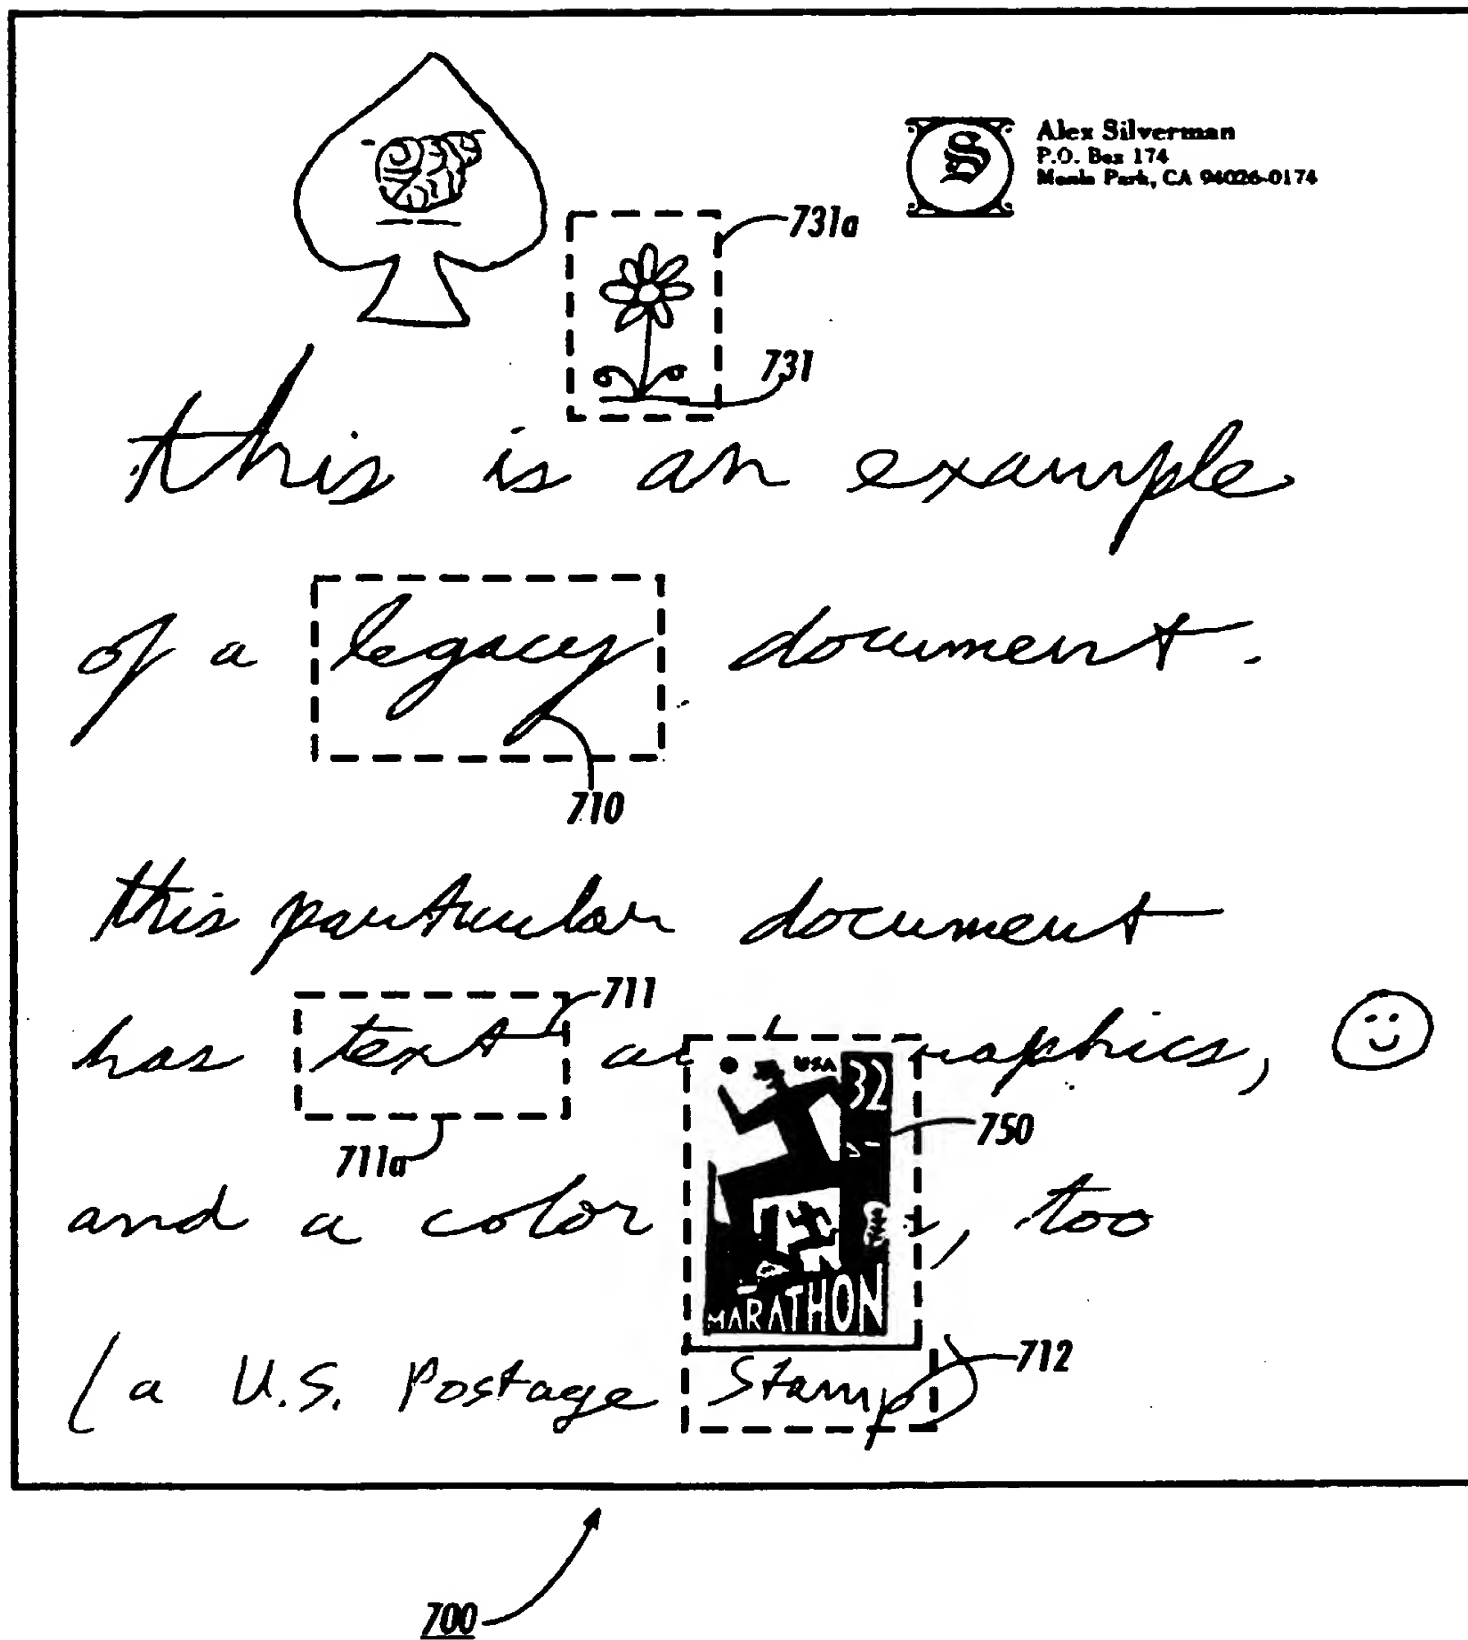 S
Alex Silverman
P.O. Box 174
Menlo Park, CA 94026-0174
731a
731
this is an example
of a legacy document.
710
this particular document
711
has text raphics,
USA 32
750
711a
and a color , too
MARATHON
(a U.S. Postage Stamp)
712
700